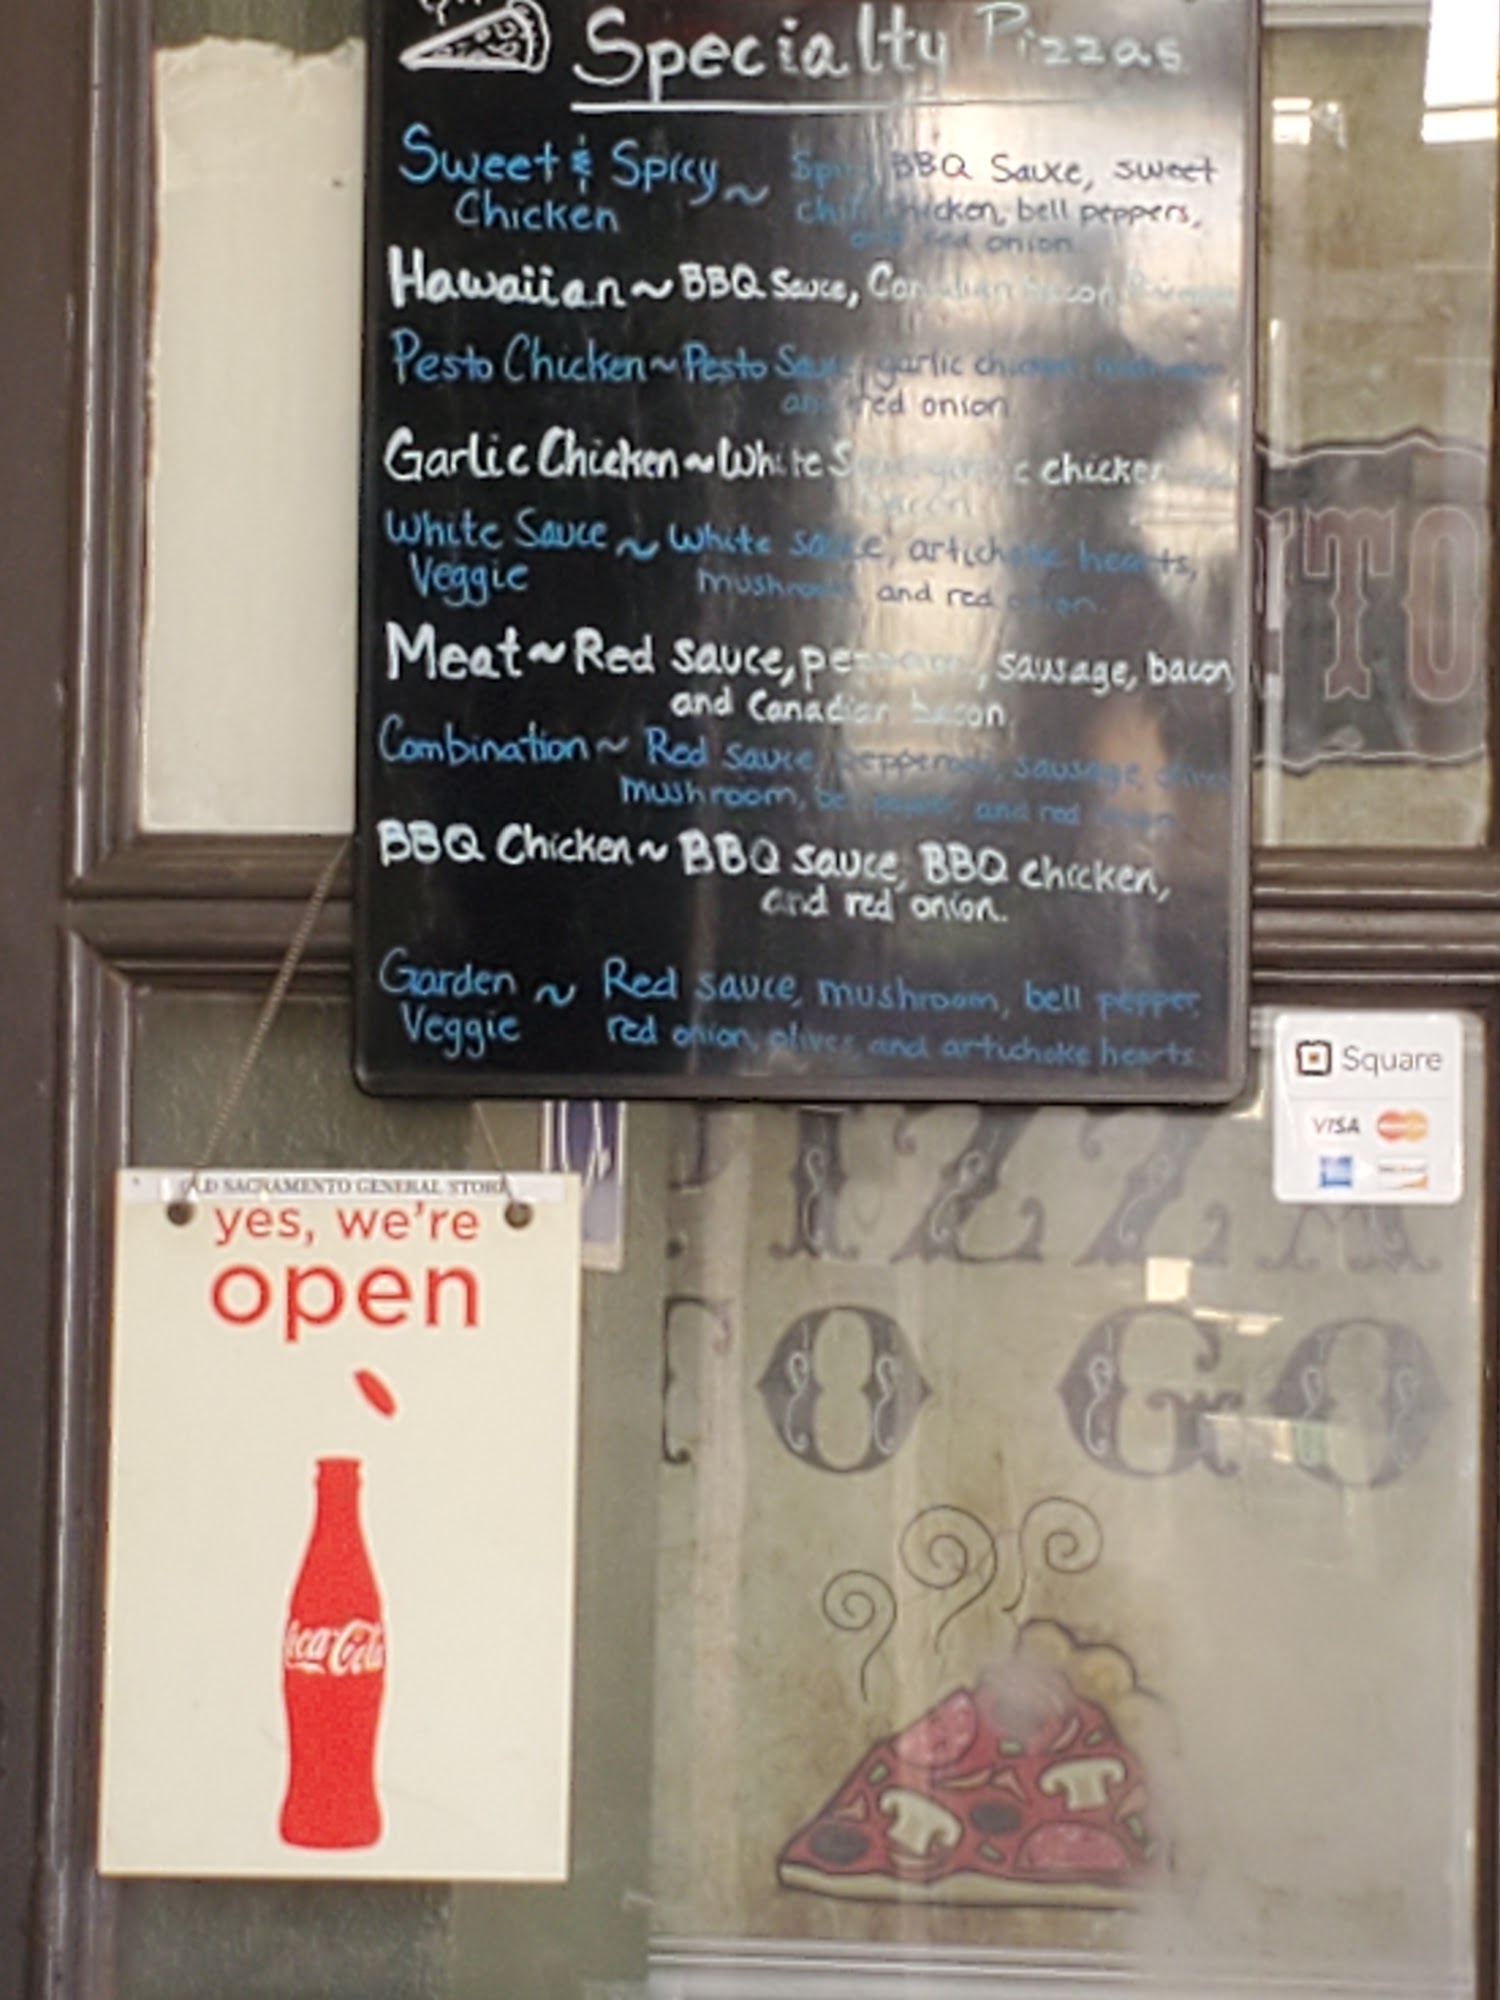 Specialty Pizzas
Sweet & Spicy ~ Spicy BBQ Sauce, sweet
Chicken chili chicken, bell peppers,
and red onion
Hawaiian ~ BBQ Sauce, Canadian bacon,
Pesto Chicken ~ Pesto Sauce, garlic chicken,
and red onion
Garlic Chicken ~ White Sauce, garlic chicken
bacon
White Sauce ~ White sauce, artichoke hearts,
Veggie mushroom and red onion.
Meat ~ Red sauce, pepperoni, sausage, bacon,
and Canadian bacon.
Combination ~ Red sauce, pepperoni, sausage,
mushroom, bell pepper, and red onion
BBQ Chicken ~ BBQ sauce, BBQ chicken,
and red onion.
Garden ~ Red sauce, mushroom, bell pepper,
Veggie red onion, olives and artichoke hearts.
NTO
Square
VISA
OLD SACRAMENTO GENERAL STORE
yes, we're
open
Coca-Cola
PIZZA
TO GO